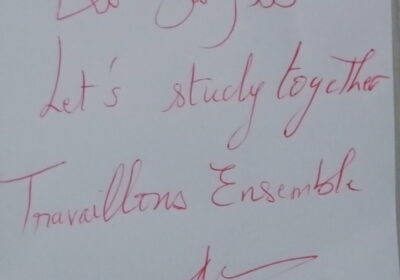 Let's study together
Travaillons Ensemble